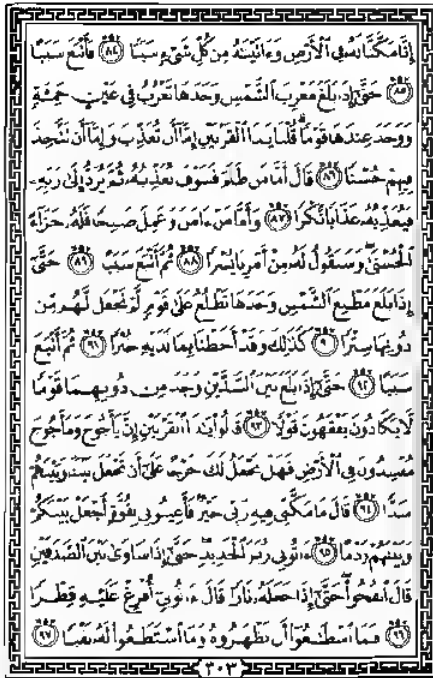 إِنَّا مَكَّنَّا لَهُ فِي الْأَرْضِ وَءَاتَيْنَاهُ مِن كُلِّ شَيْءٍ سَبَبًا ﴿٨٤﴾ فَأَتْبَعَ سَبَبًا
﴿٨٥﴾ حَتَّىٰ إِذَا بَلَغَ مَغْرِبَ الشَّمْسِ وَجَدَهَا تَغْرُبُ فِي عَيْنٍ حَمِئَةٍ
وَوَجَدَ عِندَهَا قَوْمًا قُلْنَا يَٰذَا الْقَرْنَيْنِ إِمَّا أَن تُعَذِّبَ وَإِمَّا أَن تَتَّخِذَ
فِيهِمْ حُسْنًا ﴿٨٦﴾ قَالَ أَمَّا مَن ظَلَمَ فَسَوْفَ نُعَذِّبُهُ ثُمَّ يُرَدُّ إِلَىٰ رَبِّهِ
فَيُعَذِّبُهُ عَذَابًا نُّكْرًا ﴿٨٧﴾ وَأَمَّا مَنْ ءَامَنَ وَعَمِلَ صَٰلِحًا فَلَهُ جَزَاءً
الْحُسْنَىٰ وَسَنَقُولُ لَهُ مِنْ أَمْرِنَا يُسْرًا ﴿٨٨﴾ ثُمَّ أَتْبَعَ سَبَبًا ﴿٨٩﴾ حَتَّىٰ
إِذَا بَلَغَ مَطْلِعَ الشَّمْسِ وَجَدَهَا تَطْلُعُ عَلَىٰ قَوْمٍ لَّمْ نَجْعَل لَّهُم مِّن
دُونِهَا سِتْرًا ﴿٩٠﴾ كَذَٰلِكَ وَقَدْ أَحَطْنَا بِمَا لَدَيْهِ خُبْرًا ﴿٩١﴾ ثُمَّ أَتْبَعَ
سَبَبًا ﴿٩٢﴾ حَتَّىٰ إِذَا بَلَغَ بَيْنَ السَّدَّيْنِ وَجَدَ مِن دُونِهِمَا قَوْمًا
لَّا يَكَادُونَ يَفْقَهُونَ قَوْلًا ﴿٩٣﴾ قَالُوا يَٰذَا الْقَرْنَيْنِ إِنَّ يَأْجُوجَ وَمَأْجُوجَ
مُفْسِدُونَ فِي الْأَرْضِ فَهَلْ نَجْعَلُ لَكَ خَرْجًا عَلَىٰ أَن تَجْعَلَ بَيْنَنَا وَبَيْنَهُمْ
سَدًّا ﴿٩٤﴾ قَالَ مَا مَكَّنِّي فِيهِ رَبِّي خَيْرٌ فَأَعِينُونِي بِقُوَّةٍ أَجْعَلْ بَيْنَكُمْ
وَبَيْنَهُمْ رَدْمًا ﴿٩٥﴾ ءَاتُونِي زُبَرَ الْحَدِيدِ حَتَّىٰ إِذَا سَاوَىٰ بَيْنَ الصَّدَفَيْنِ
قَالَ انفُخُوا حَتَّىٰ إِذَا جَعَلَهُ نَارًا قَالَ ءَاتُونِي أُفْرِغْ عَلَيْهِ قِطْرًا
﴿٩٦﴾ فَمَا اسْطَٰعُوا أَن يَظْهَرُوهُ وَمَا اسْتَطَٰعُوا لَهُ نَقْبًا ﴿٩٧﴾
٣٠٣